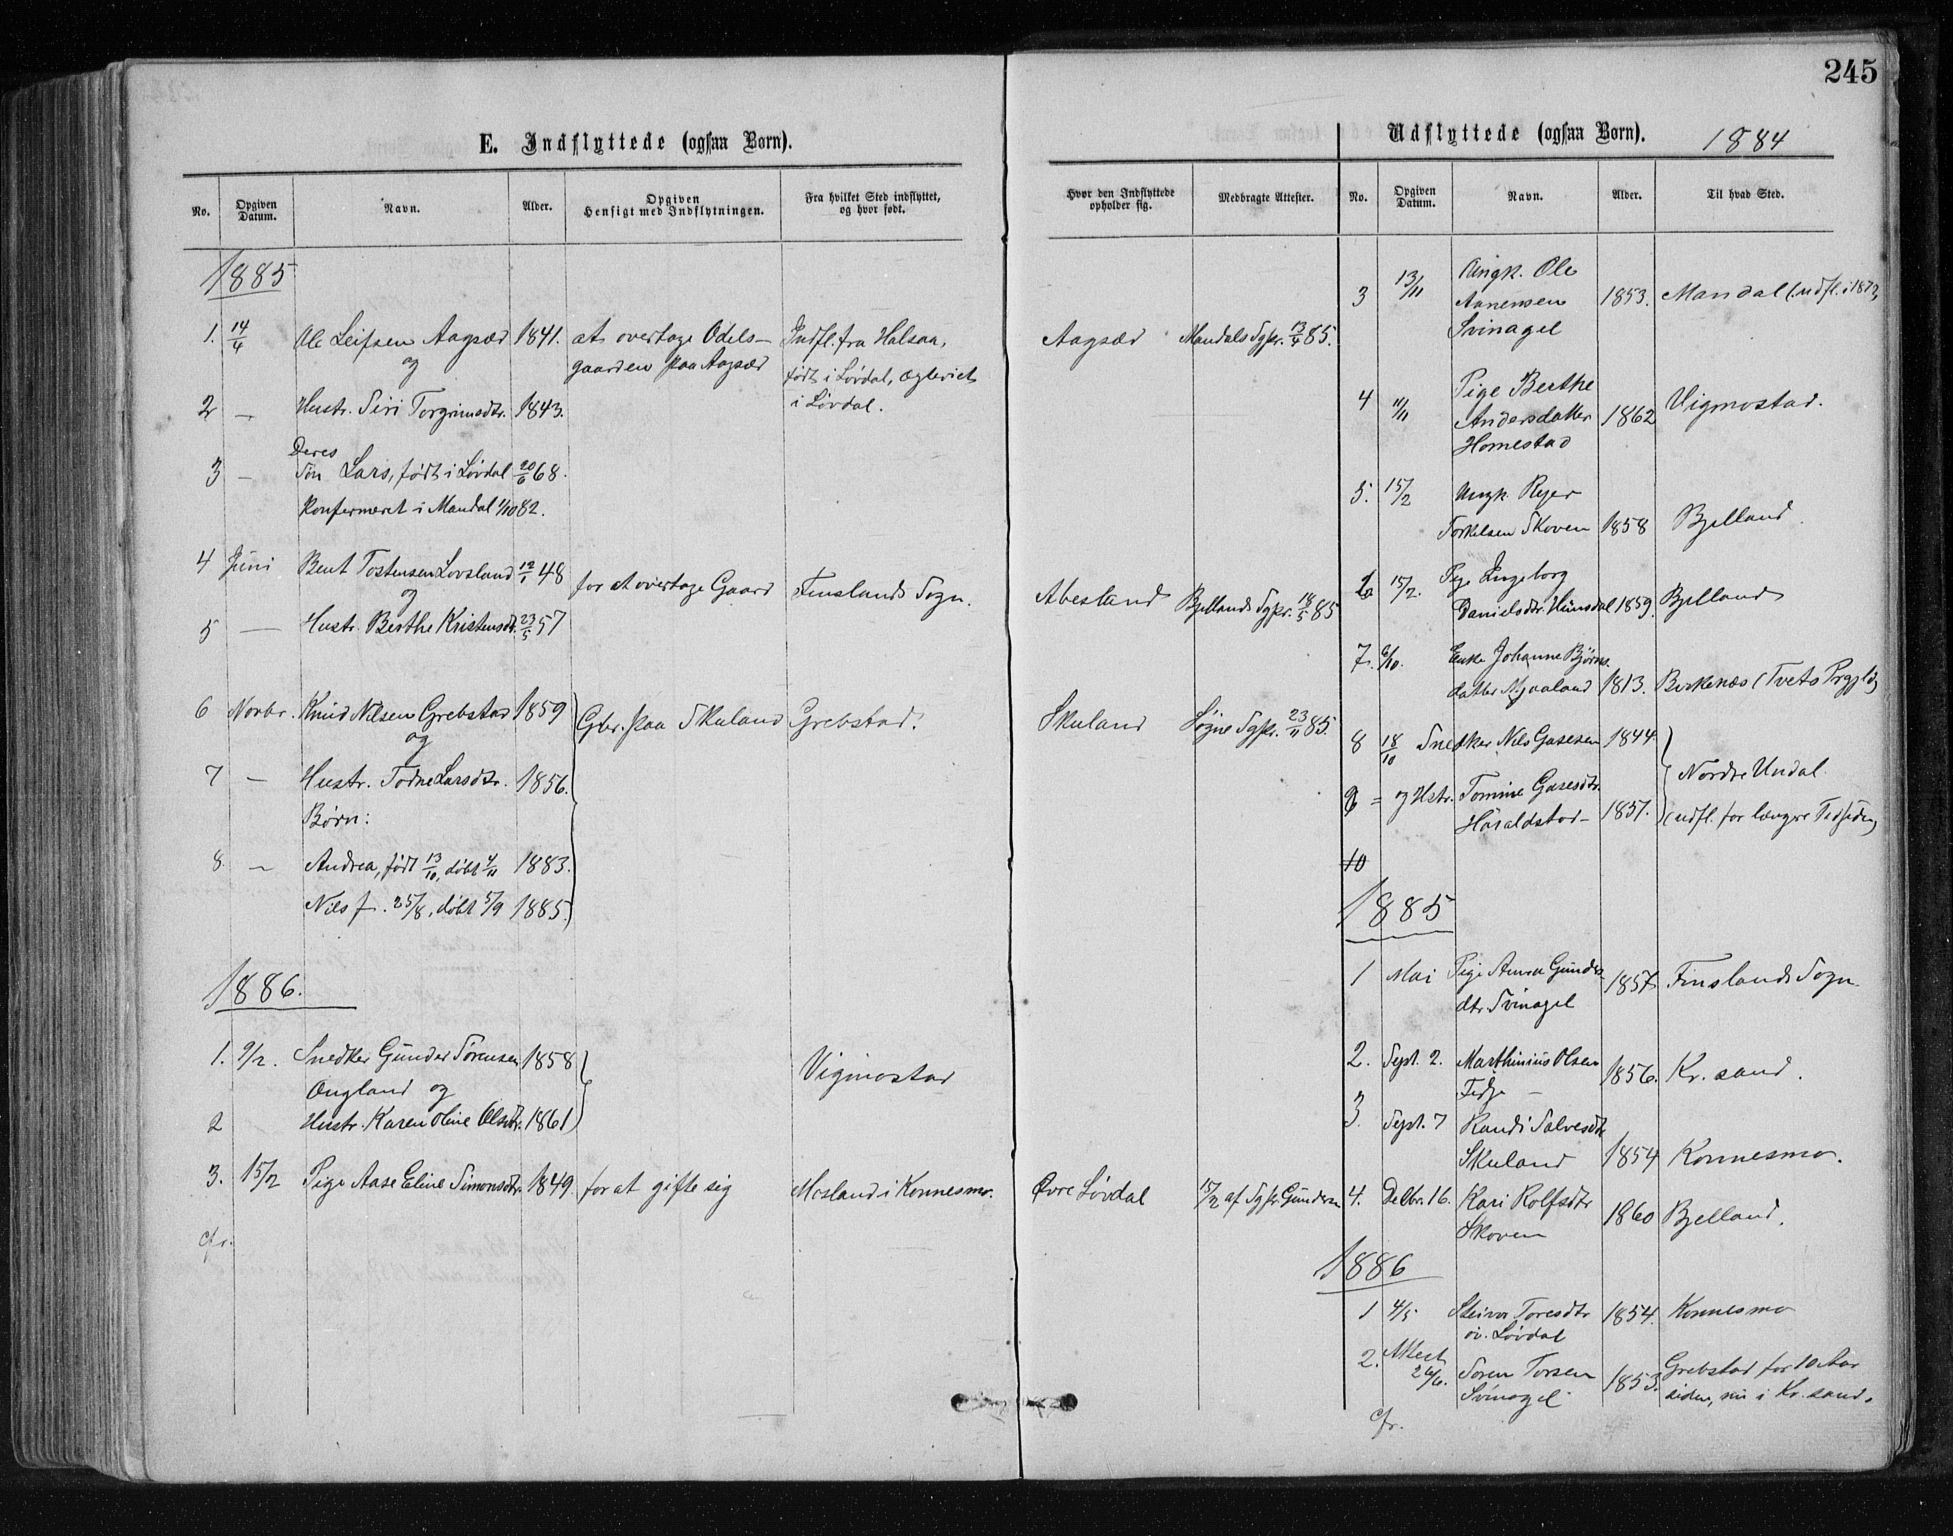 245
E. Indflyttede (ogsaa Børn).
No.
Opgiven Datum.
Navn.
Alder.
Opgiven Hensigt med Indflytningen.
Fra hvilket Sted indflyttet, og hvor født.
Hvor den Indflyttede opholder sig.
Medbragte Attester.
1885
1. 14/4 Ole Leifsen Aagsæd 1841. at overtage Odels- Indfl. fra Halsaa, Aagsæd Mandals Sgpr. 13/4 85.
og gaarden paa Aagsæd født i Løvdal, ægteviet
2 — Hustr. Siri Torgrimsdtr. 1843. i Løvdal.
Deres
3 — Søn Lars, født i Løvdal 20/6 68.
konfirmeret i Mandal 1/10 82.
4 Juni Bent Tostensen Lovsland 12/1 48 for at overtage Gaard Finslands Sogn. Abesland Bjellands Sgpr. 18/5 85
og
5 — Hustr. Berthe Kristensdt. 23/5 57
6 Novbr. Knud Nilsen Grebstad 1859 Gbr. paa Skuland Grebstad. Skuland Søgne Sgpr. 23/11 85.
og
7 — Hustr. Todne Larsdtr. 1856.
Børn:
8. — Andrea, født 13/10, døbt 4/11 1883.
Nils f. 25/8, døbt 5/9 1885.
1886.
1. 9/2. Snedker Gunder Sørensen 1858 Vigmostad
Øngland og
2 Hustr. Karen Oline Olsdtr. 1861
3. 15/2 Pige Aase Eline Simonsdtr. 1849 for at gifte sig Mosland i Konnesmo. Øvre Løvdal 15/2 af Sgpr. Gundersen
cfr.
Udflyttede (ogsaa Børn). 1884
No.
Opgiven Datum.
Navn.
Alder.
Til hvad Sted.
3 13/11 Ungk. Ole
Aanensen 1853. Mandal (udfl. i 1872)
Svinagel
4 11/11 Pige Berthe
Andersdatter 1862 Vigmostad.
Homestad
5. 15/2 Ungk. Rejer
Torkelsen Skoven 1858 Bjelland.
6 15/2. Pige Ingeborg
Danielsdtr. Hunsdal 1859. Bjelland
7. 6/10. Enke Johanne Bjørns-
datter Mjaaland 1813. Birkenæs (Tvets Prgjld)
8 18/10 Snedker Nils Gasesen 1844. Nordre Undal.
9 = og Hstr. Tomine Gasesdtr. 1857. (udfl. for længere Tid siden)
Haraldstad
10
1885
1 Mai Pige Anna Gunders-
dtr. Svinagel 1857 Finslands Sogn
2. Sept. 2. Marthinius Olsen 1856. Kr. sand.
Fidje —
3. Sept. 7 Randi Salvesdtr.
Skuland 1854 Konnesmo.
4. Decbr. 16. Kari Rolfsdtr 1860 Bjelland.
Skoven
1886
1 4/5 Steinor Toresdtr 1854. Konnesmo
øv. Løvdal
2. Attest
26/6. Søren Torsen 1853. Grebstad for 10 Aar
Svinagel siden, nu i Kr. sand.
cfr.